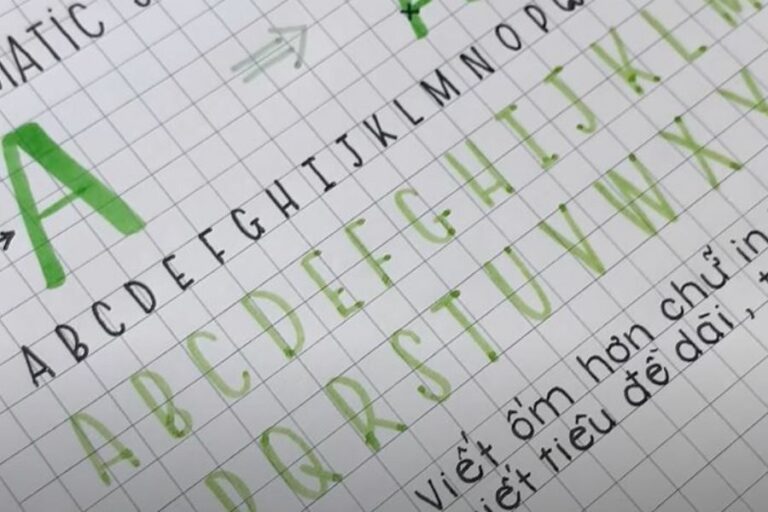 MATIC
A
A B C D E F G H I J K L M N O P Q
A B C D E F G H I J K L M
P Q R S T U V W X Y
Viết ốm hơn chữ in
viết tiêu đề dài ,